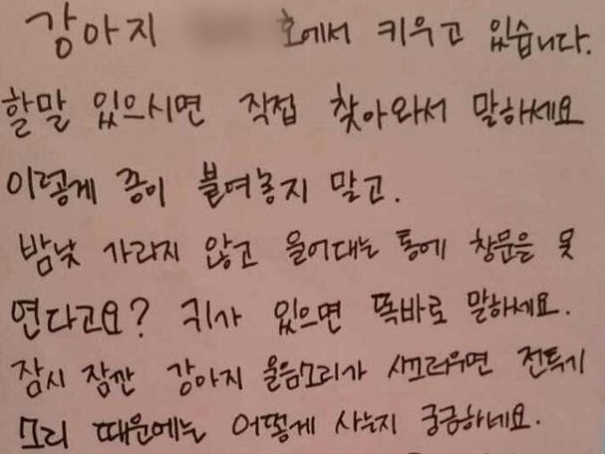 강아지 호에서 키우고 있습니다.
할말 있으시면 직접 찾아와서 말하세요
이렇게 종이 붙여놓지 말고.
밤낮 가리지 않고 울어대는 통에 창문을 못
연다고요? 귀가 있으면 똑바로 말하세요.
잠시 잠깐 강아지 울음소리가 시끄러우면 전투기
소리 때문에는 어떻게 사는지 궁금하네요.